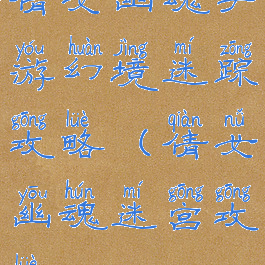 yóu huàn jìng mí zōng
游幻境迷踪
gōng luè qiàn nǚ
攻略（倩女
yōu hún mí gōng gōng
幽魂迷宫攻
luè